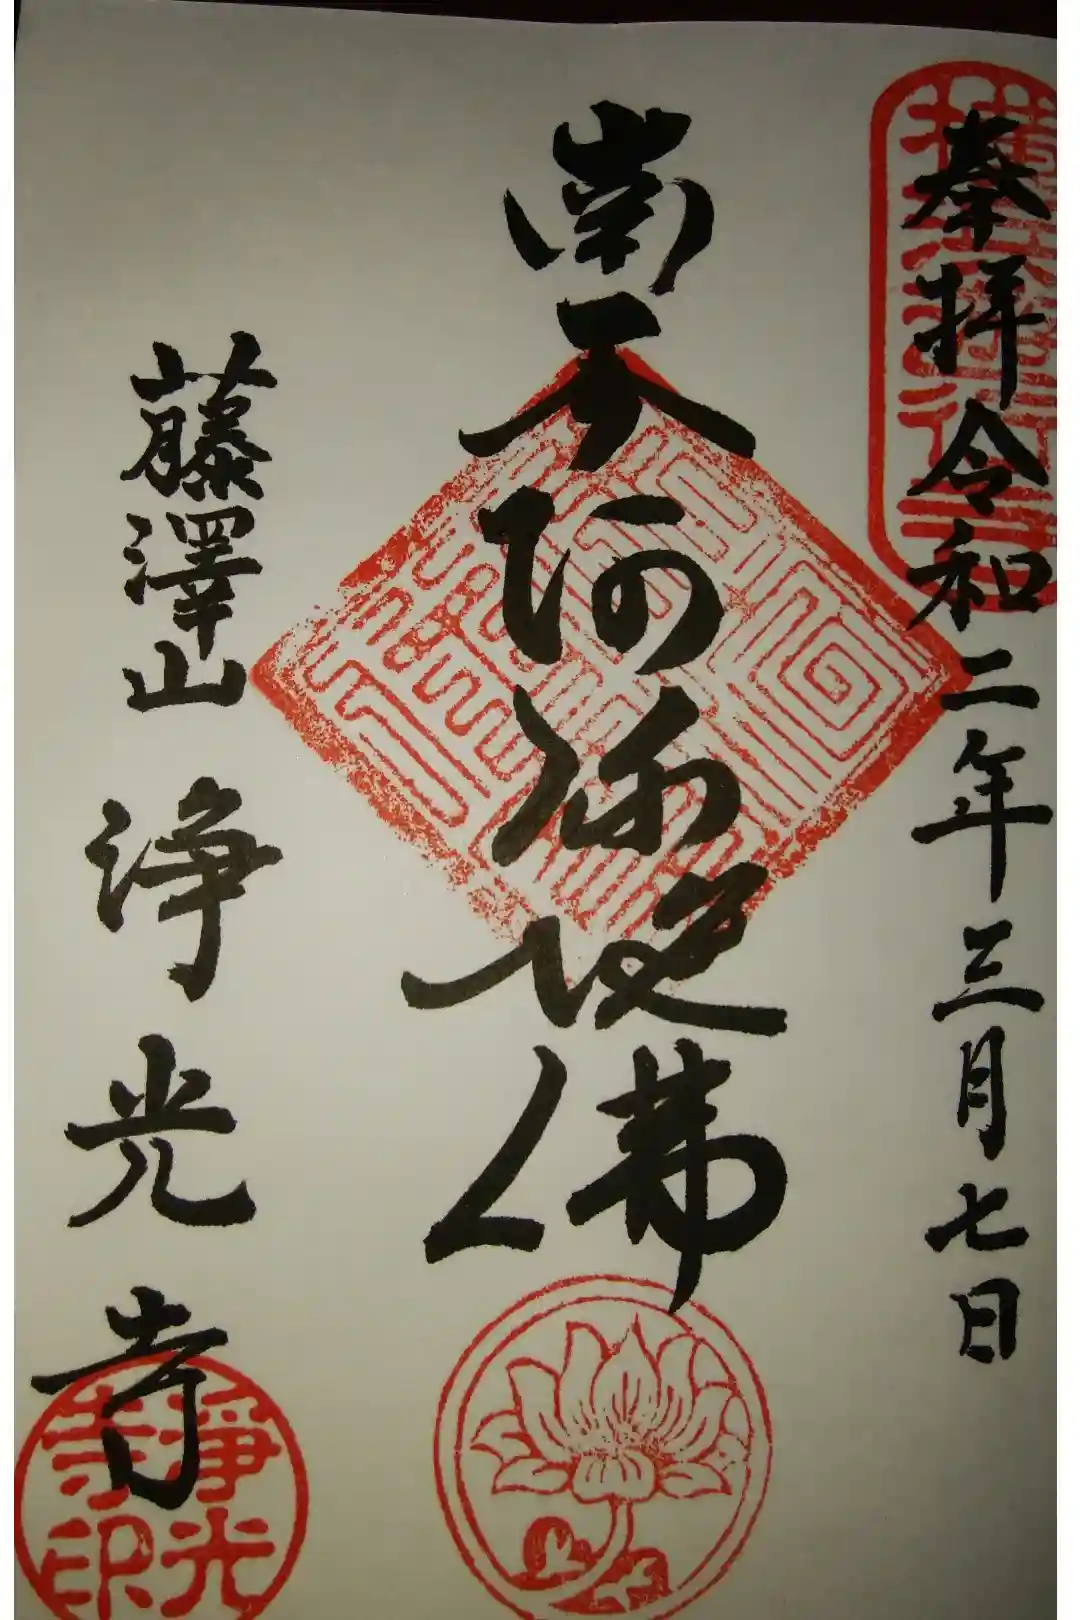 奉拝令和二年三月七日
南无阿弥陀佛
藤澤山 浄光寺
浄光寺印